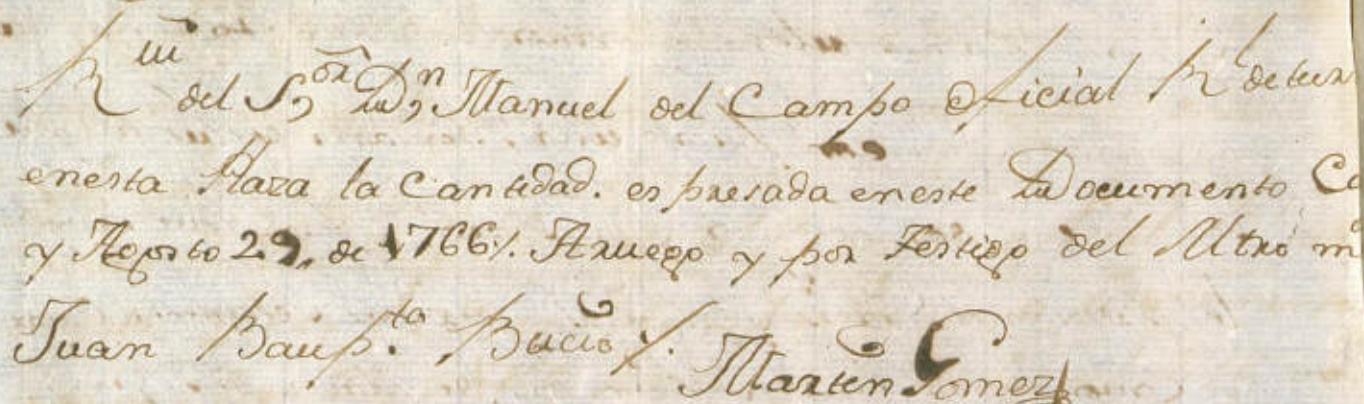 R.ui del S,or Dn, Manuel del Campo oficial Rl de
enesta Plaza la Cantidad. espresada eneste Documento
y Agosto 29, de 1766/. Aruego y por Testigo del Mtro
Juan Baup.ta Bucio /. Marten Gomez